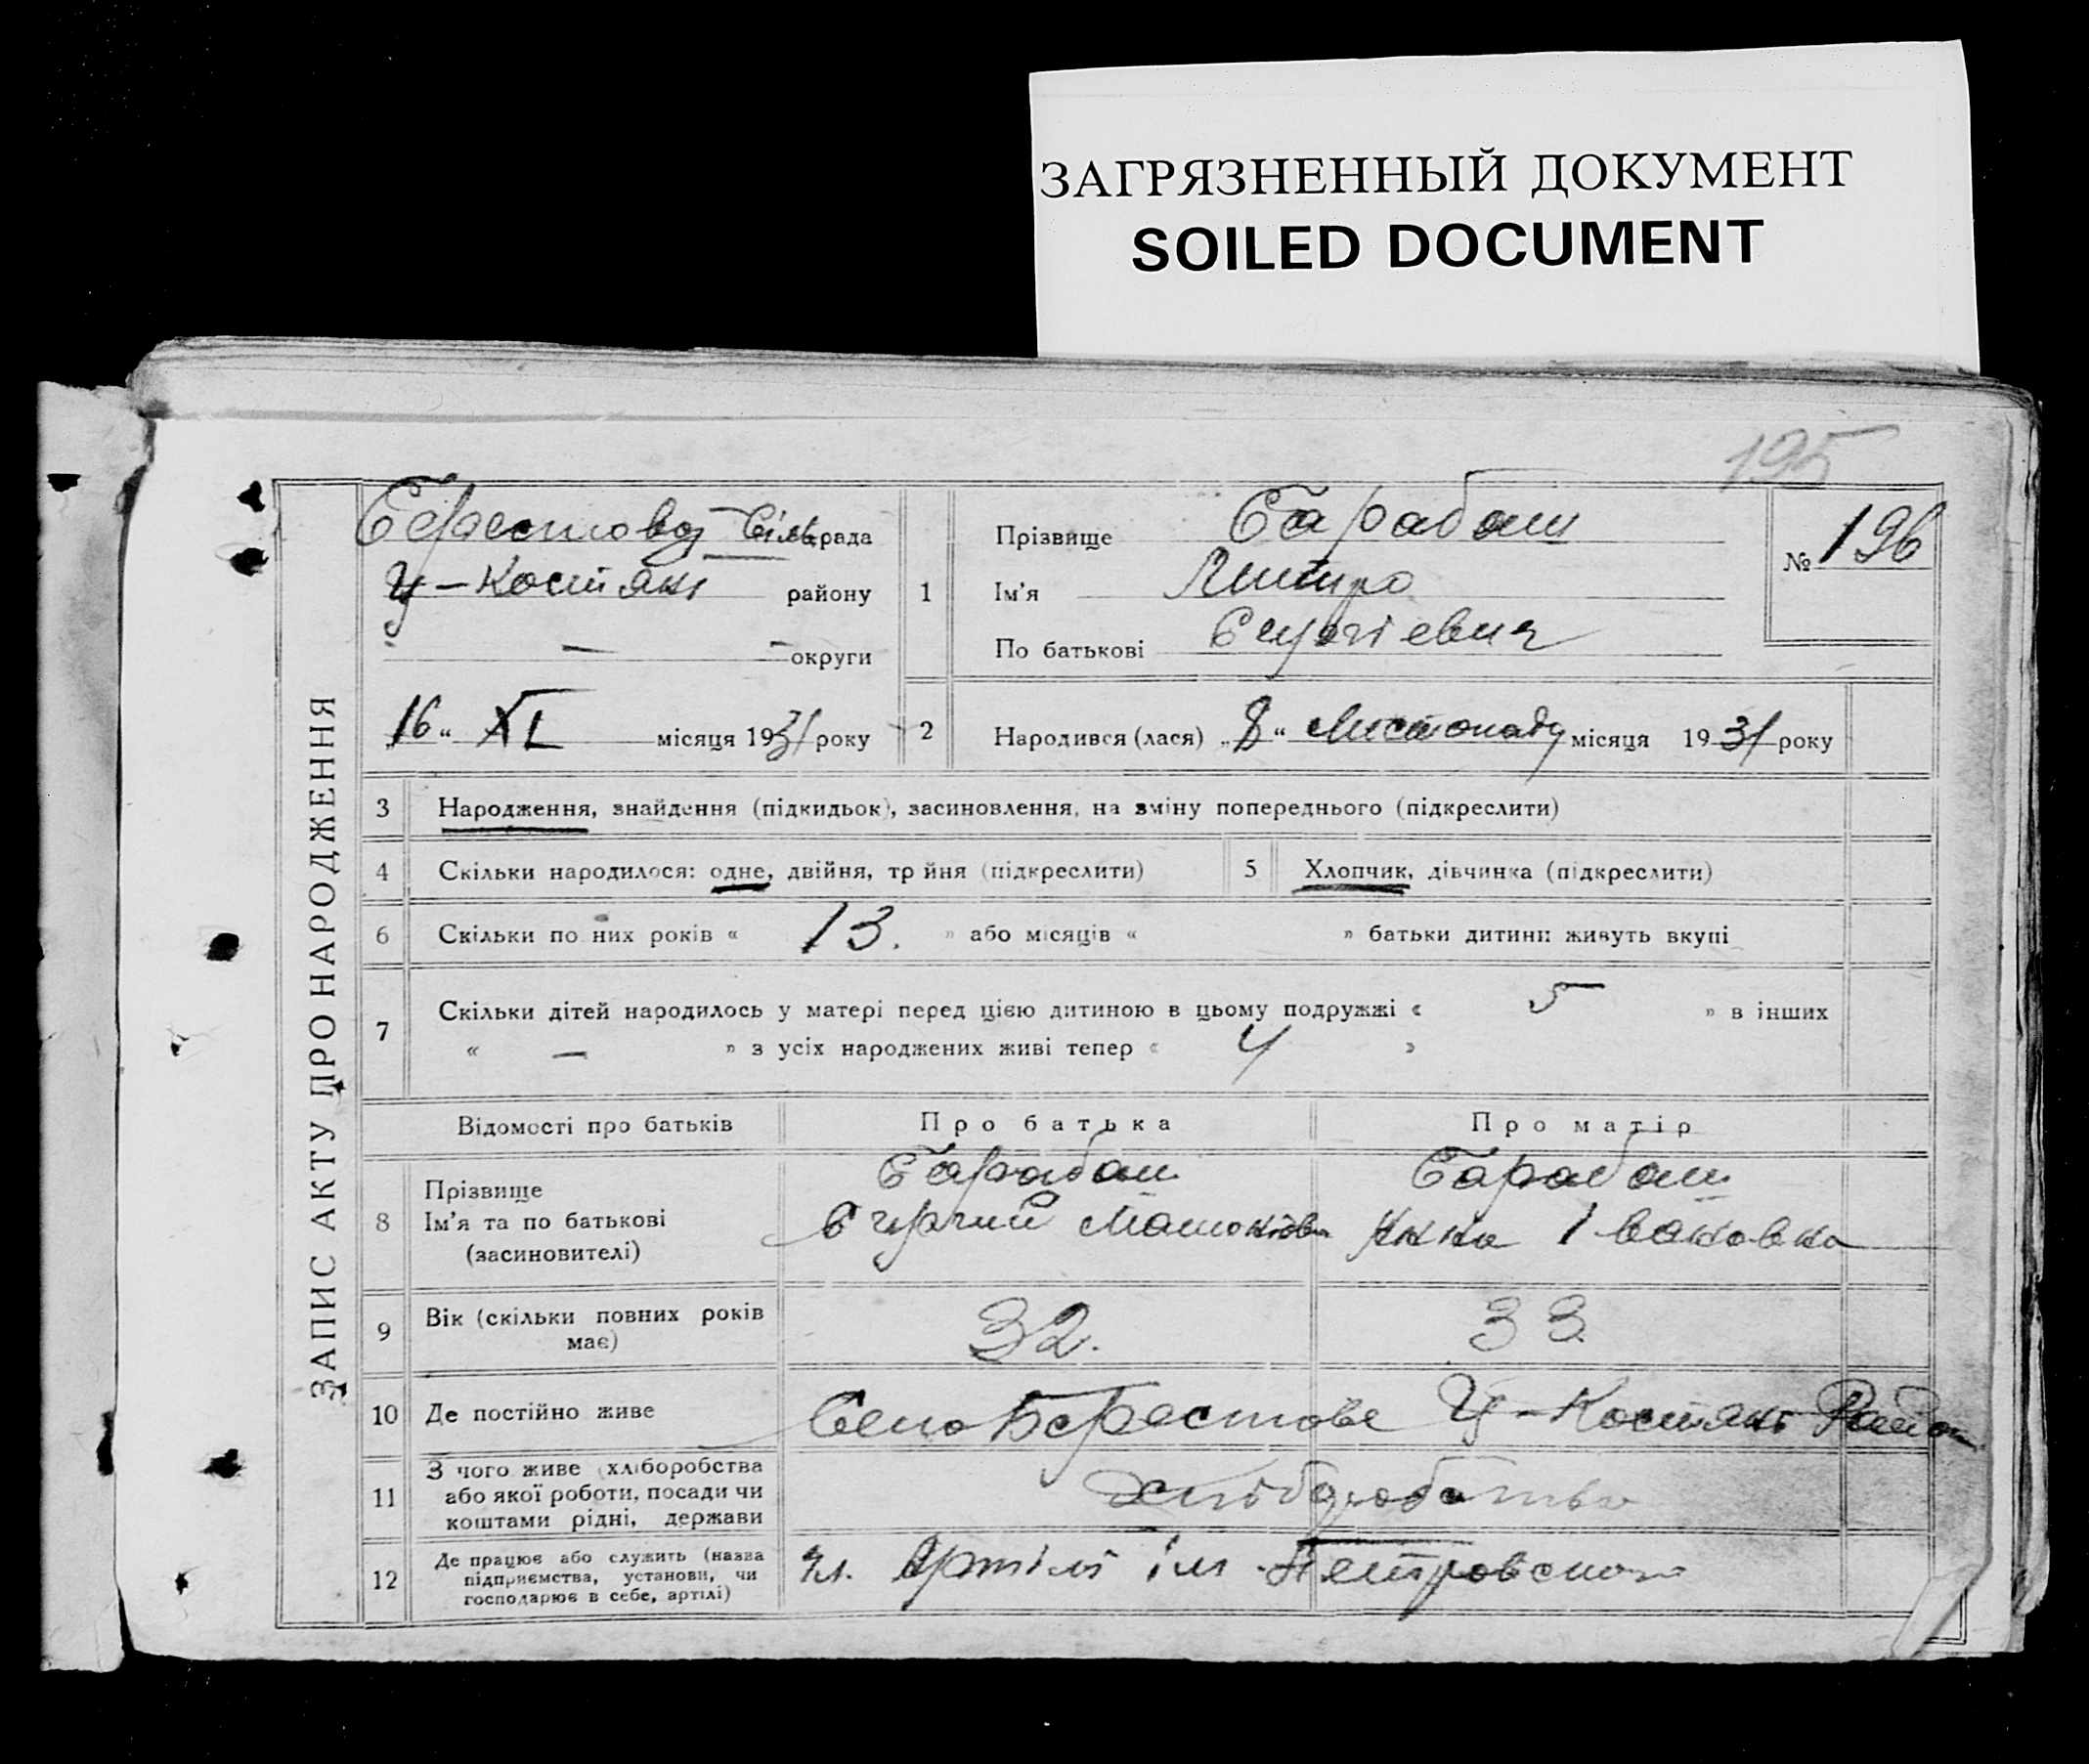 ЗАГРЯЗНЕННЫЙ ДОКУМЕНТ
SOILED DOCUMENT
195
ЗАПИС АКТУ ПРО НАРОДЖЕННЯ
Берестовој Сіль рада
Ц-Костянт району
— округи
„16“ XI місяця 1931 року
1
Прізвище Барабаш
Ім'я Дмитро
По батькові
№ 196
2 Народився (лася) „8“ Листопаду місяця 1931 року
3 Народження, знайдення (підкидьок), засиновлення, на зміну попереднього (підкреслити)
4 Скільки народилося: одне, двійня, тр йня (підкреслити)
5 Хлопчик, дівчинка (підкреслити)
6 Скільки по них років « 13. » або місяців « » батьки дитини живуть вкупі
7 Скільки дітей народилось у матері перед цією дитиною в цьому подружжі « 5 » в інших
« — » з усіх народжених живі тепер « 4 »
Відомості про батьків Про батька Про матір
8
Прізвище Барабаш Барабаш
Ім'я та по батькові Анна Івановна
(засиновителі)
9 Вік (скільки повних років
має) 32. 33.
10 Де постійно живе Село Берестове Ц-Костянт Район
11 З чого живе (хліборобства
або якої роботи, посади чи
коштами рідні, держави
хліборобство
12 Де працює або служить (назва
підприємства, установи, чи
господарює в себе, артілі)
Чл. Артілі ім. Петровского